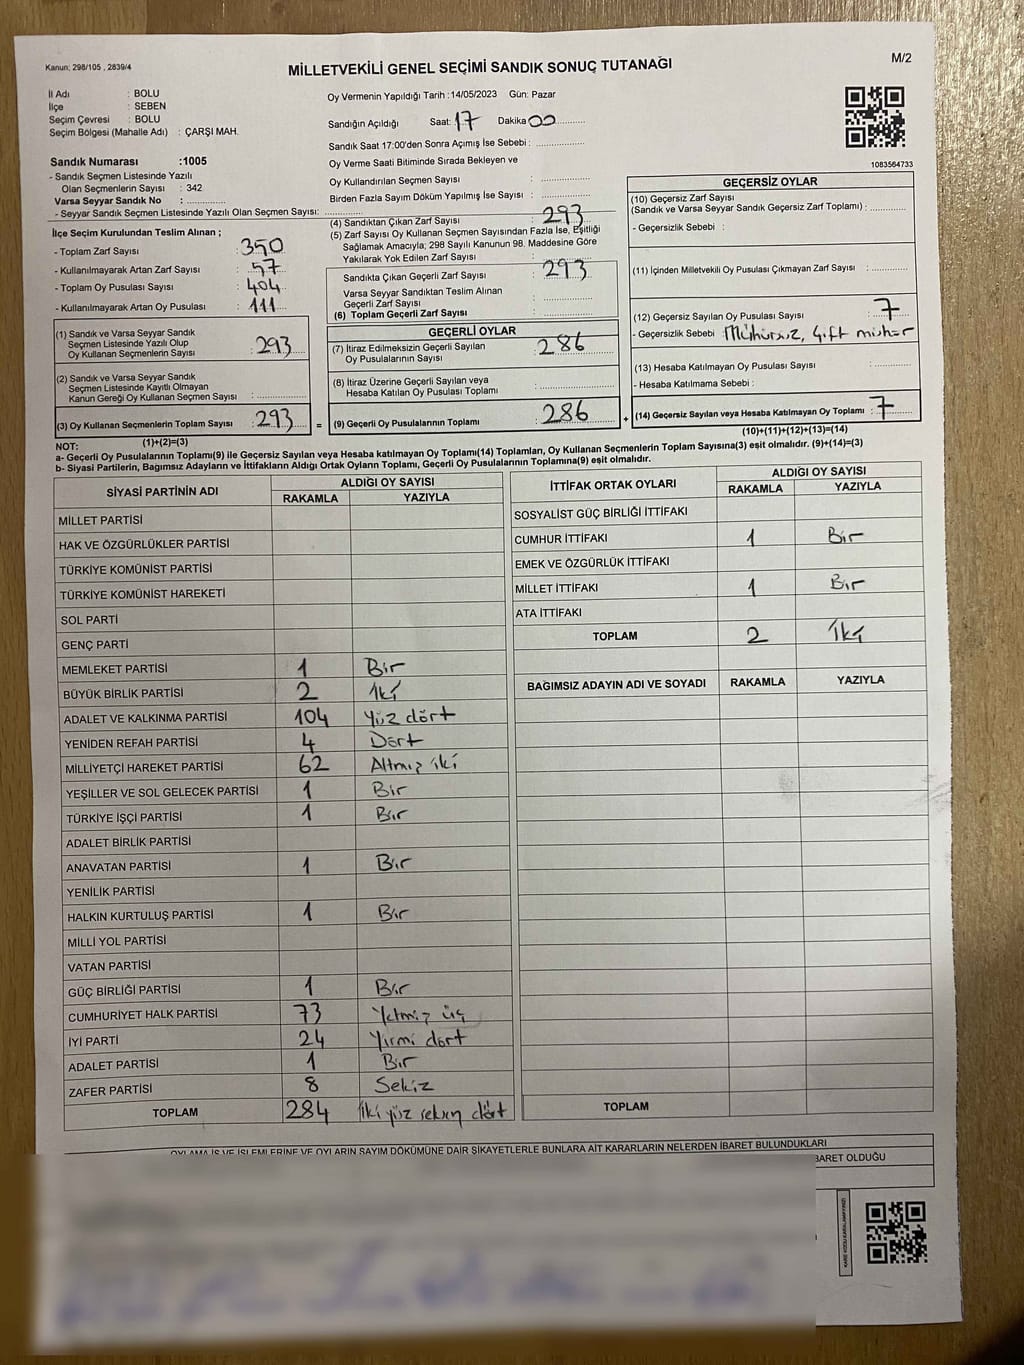 Kanun; 298/105 , 2839/4
MİLLETVEKİLİ GENEL SEÇİMİ SANDIK SONUÇ TUTANAĞI
M/2
İl Adı : BOLU
İlçe : SEBEN
Seçim Çevresi : BOLU
Seçim Bölgesi (Mahalle Adı) : ÇARŞI MAH.
Sandık Numarası :1005
- Sandık Seçmen Listesinde Yazılı
Olan Seçmenlerin Sayısı : 342
Varsa Seyyar Sandık No :
- Seyyar Sandık Seçmen Listesinde Yazılı Olan Seçmen Sayısı:
İlçe Seçim Kurulundan Teslim Alınan ;
- Toplam Zarf Sayısı : 350
- Kullanılmayarak Artan Zarf Sayısı : 57
- Toplam Oy Pusulası Sayısı : 404
- Kullanılmayarak Artan Oy Pusulası : 111
(1) Sandık ve Varsa Seyyar Sandık
Seçmen Listesinde Yazılı Olup
Oy Kullanan Seçmenlerin Sayısı : 293
(2) Sandık ve Varsa Seyyar Sandık
Seçmen Listesinde Kayıtlı Olmayan
Kanun Gereği Oy Kullanan Seçmen Sayısı :
(3) Oy Kullanan Seçmenlerin Toplam Sayısı : 293
(1)+(2)=(3)
Oy Vermenin Yapıldığı Tarih :14/05/2023 Gün: Pazar
Sandığın Açıldığı Saat: 17 Dakika 00
Sandık Saat 17:00'den Sonra Açımış İse Sebebi :
Oy Verme Saati Bitiminde Sırada Bekleyen ve
Oy Kullandırılan Seçmen Sayısı :
Birden Fazla Sayım Döküm Yapılmış İse Sayısı :
(4) Sandıktan Çıkan Zarf Sayısı : 293
(5) Zarf Sayısı Oy Kullanan Seçmen Sayısından Fazla İse, Eşitliği
Sağlamak Amacıyla; 298 Sayılı Kanunun 98. Maddesine Göre
Yakılarak Yok Edilen Zarf Sayısı :
Sandıkta Çıkan Geçerli Zarf Sayısı : 293
Varsa Seyyar Sandıktan Teslim Alınan
Geçerli Zarf Sayısı :
(6) Toplam Geçerli Zarf Sayısı :
GEÇERLİ OYLAR
(7) İtiraz Edilmeksizin Geçerli Sayılan
Oy Pusulalarının Sayısı : 286
(8) İtiraz Üzerine Geçerli Sayılan veya
Hesaba Katılan Oy Pusulası Toplamı :
= (9) Geçerli Oy Pusulalarının Toplamı : 286 +
1083564733
GEÇERSİZ OYLAR
(10) Geçersiz Zarf Sayısı
(Sandık ve Varsa Seyyar Sandık Geçersiz Zarf Toplamı) :
- Geçersizlik Sebebi :
(11) İçinden Milletvekili Oy Pusulası Çıkmayan Zarf Sayısı :
(12) Geçersiz Sayılan Oy Pusulası Sayısı : 7
- Geçersizlik Sebebi : Mühürsüz, Çift mühür
(13) Hesaba Katılmayan Oy Pusulası Sayısı :
- Hesaba Katılmama Sebebi :
(14) Geçersiz Sayılan veya Hesaba Katılmayan Oy Toplamı : 7
(10)+(11)+(12)+(13)=(14)
NOT:
a- Geçerli Oy Pusulalarının Toplamı(9) ile Geçersiz Sayılan veya Hesaba katılmayan Oy Toplamı(14) Toplamları, Oy Kullanan Seçmenlerin Toplam Sayısına(3) eşit olmalıdır. (9)+(14)=(3)
b- Siyasi Partilerin, Bağımsız Adayların ve İttifakların Aldığı Ortak Oyların Toplamı, Geçerli Oy Pusulalarının Toplamına(9) eşit olmalıdır.
SİYASİ PARTİNİN ADI ALDIĞI OY SAYISI
RAKAMLA YAZIYLA
MİLLET PARTİSİ
HAK VE ÖZGÜRLÜKLER PARTİSİ
TÜRKİYE KOMÜNİST PARTİSİ
TÜRKİYE KOMÜNİST HAREKETİ
SOL PARTİ
GENÇ PARTİ
MEMLEKET PARTİSİ 1 Bir
BÜYÜK BİRLİK PARTİSİ 2 İki
ADALET VE KALKINMA PARTİSİ 104 Yüz dört
YENİDEN REFAH PARTİSİ 4 Dört
MİLLİYETÇİ HAREKET PARTİSİ 62 Altmış iki
YEŞİLLER VE SOL GELECEK PARTİSİ 1 Bir
TÜRKİYE İŞÇİ PARTİSİ 1 Bir
ADALET BİRLİK PARTİSİ
ANAVATAN PARTİSİ 1 Bir
YENİLİK PARTİSİ
HALKIN KURTULUŞ PARTİSİ 1 Bir
MİLLİ YOL PARTİSİ
VATAN PARTİSİ
GÜÇ BİRLİĞİ PARTİSİ 1 Bir
CUMHURİYET HALK PARTİSİ 73 Yetmiş üç
İYİ PARTİ 24 Yirmi dört
ADALET PARTİSİ 1 Bir
ZAFER PARTİSİ 8 Sekiz
TOPLAM 284 İki yüz seksen dört
İTTİFAK ORTAK OYLARI ALDIĞI OY SAYISI
RAKAMLA YAZIYLA
SOSYALİST GÜÇ BİRLİĞİ İTTİFAKI
CUMHUR İTTİFAKI 1 Bir
EMEK VE ÖZGÜRLÜK İTTİFAKI
MİLLET İTTİFAKI 1 Bir
ATA İTTİFAKI
TOPLAM 2 İki
BAĞIMSIZ ADAYIN ADI VE SOYADI RAKAMLA YAZIYLA
TOPLAM
OYLAMA İŞ VE İŞLEMLERİNE VE OYLARIN SAYIM DÖKÜMÜNE DAİR ŞİKAYETLERLE BUNLARA AİT KARARLARIN NELERDEN İBARET BULUNDUKLARI
BARET OLDUĞU